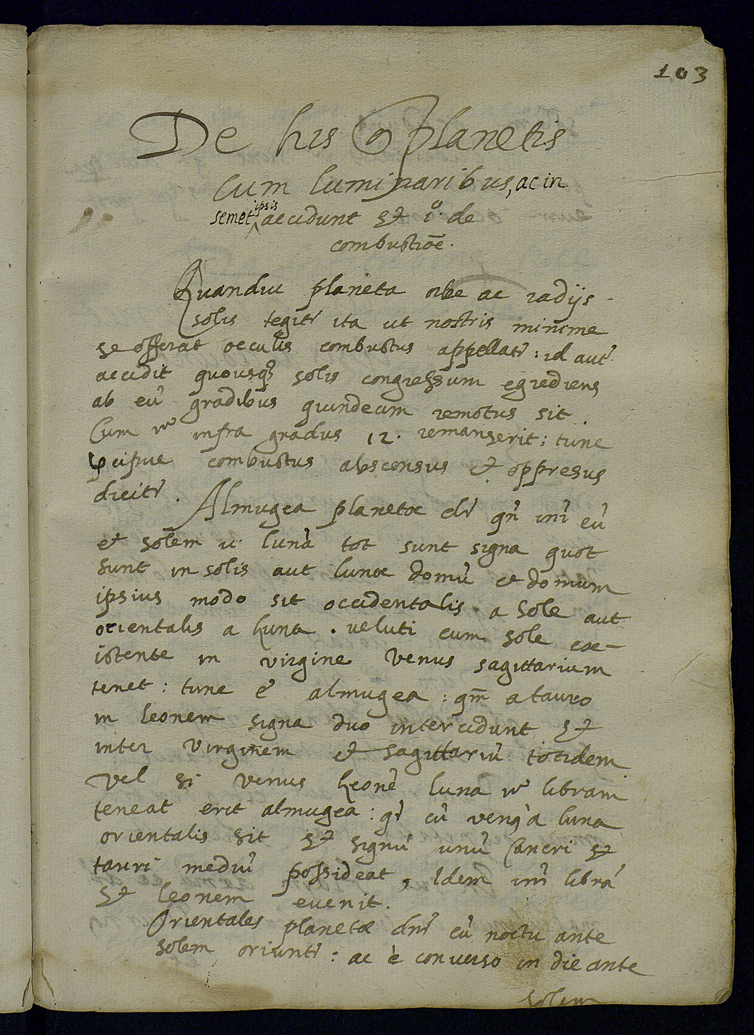 103
De his q planetis
Cum luminaribus, ac in
semet ipsis accidunt et i.o de
combustiõe.
Quandiu planeta orbe ac radijs
solis tegitr ita ut nostris minime
se offerat oculis combustus appellatr: id autẽ
accidit quousq solis congressum egrediens
ab eũ gradibus quindecim remotus sit
Cum vº infra gradus 12. remanserit: tunc
pcipue combustus absconsus et oppresus
dicitr.
Almugea planetae dr qñ intr eũ
et solem u. lunã tot sunt signa quot
sunt in solis aut lunae domũ et domum
ipsius modo sit occidentalis a sole aut
orientalis a luna. veluti cum sole exe-
istente in virgine Venus sagittarium
tenet: tunc ẽ almugea: qm̃ a tauro
in leonem signa duo intercidunt et
inter virginem et sagittariũ totidem
Vel si venus leonẽ luna vº libram
teneat erit almugea: qr cũ veng a luna
orientalis sit et signũ unũ Cancri et
tauri mediũ possideat, Idem intr librã
et leonem evenit.
Orientales planetae dnr cũ noctu ante
solem oriuntr: ac è converso in die ante
solem